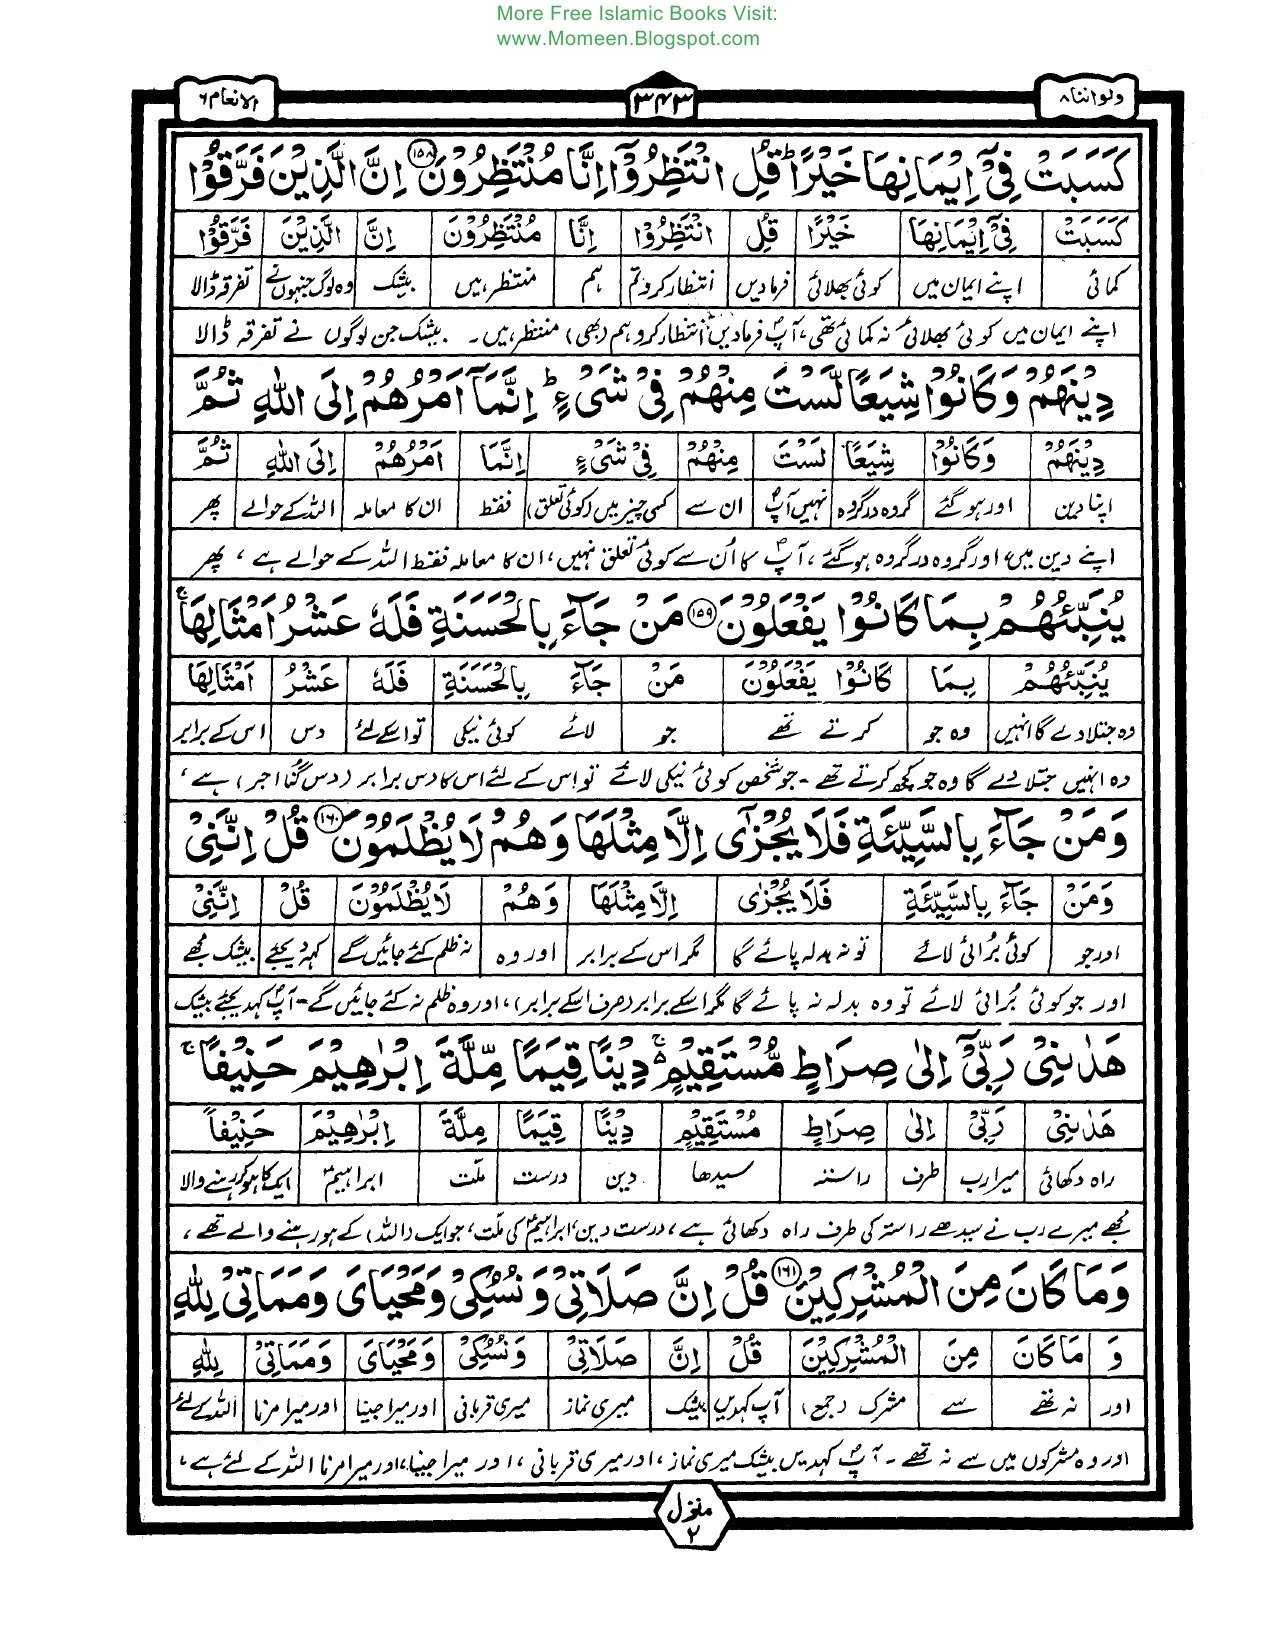 More Free Islamic Books Visit:
www.Momeen.Blogspot.com
ولواننا ۸
۳۴۳
الانعام ۶
كَسَبَتْ فِیْۤ اِیْمَانِهَا خَیْرًا ؕ قُلِ انْتَظِرُوْۤا اِنَّا مُنْتَظِرُوْنَ ۝۱۵۸ اِنَّ الَّذِیْنَ فَرَّقُوْا
كَسَبَتْ فِیْۤ اِیْمَانِهَا خَیْرًا قُلِ انْتَظِرُوْا اِنَّا مُنْتَظِرُوْنَ اِنَّ الَّذِیْنَ فَرَّقُوْا
کمائی اپنے ایمان میں کوئی بھلائی فرمادیں انتظار کرو تم ہم منتظر ہیں بیشک وہ لوگ جنہوں نے تفرقہ ڈالا
اپنے ایمان میں کوئی بھلائی نہ کمائی تھی، آپؐ فرمادیں انتظار کرو ہم (بھی) منتظر ہیں۔ بیشک جن لوگوں نے تفرقہ ڈالا
دِیْنَهُمْ وَكَانُوْا شِیَعًا لَّسْتَ مِنْهُمْ فِیْ شَیْءٍ ؕ اِنَّمَاۤ اَمْرُهُمْ اِلَی اللّٰهِ ثُمَّ
دِیْنَهُمْ وَكَانُوْا شِیَعًا لَسْتَ مِنْهُمْ فِیْ شَیْءٍ اِنَّمَا اَمْرُهُمْ اِلَی اللّٰهِ ثُمَّ
اپنا دین اور ہو گئے گروہ در گروہ نہیں آپؐ ان سے کسی چیز میں (کوئی تعلق) فقط ان کا معاملہ اللہ کے حوالے پھر
اپنے دین میں، اور گروہ در گروہ ہو گئے، آپؐ کا اُن سے کوئی تعلق نہیں، ان کا معاملہ فقط اللہ کے حوالے ہے، پھر
یُنَبِّئُهُمْ بِمَا كَانُوْا یَفْعَلُوْنَ ۝۱۵۹ مَنْ جَآءَ بِالْحَسَنَةِ فَلَهٗ عَشْرُ اَمْثَالِهَا ۚ
یُنَبِّئُهُمْ بِمَا كَانُوْا یَفْعَلُوْنَ مَنْ جَآءَ بِالْحَسَنَةِ فَلَهٗ عَشْرُ اَمْثَالِهَا
وہ جتلا دے گا انہیں وہ جو کرتے تھے جو لائے کوئی نیکی تو اسکے لئے دس اس کے برابر
وہ انہیں جتلا دے گا وہ جو کچھ کرتے تھے۔ جو شخص کوئی نیکی لائے تو اس کے لئے اس کا دس برابر (دس گنا اجر) ہے،
وَمَنْ جَآءَ بِالسَّیِّئَةِ فَلَا یُجْزٰۤی اِلَّا مِثْلَهَا وَهُمْ لَا یُظْلَمُوْنَ ۝۱۶۰ قُلْ اِنَّنِیْ
وَمَنْ جَآءَ بِالسَّیِّئَةِ فَلَا یُجْزٰی اِلَّا مِثْلَهَا وَهُمْ لَا یُظْلَمُوْنَ قُلْ اِنَّنِیْ
اور جو کوئی بُرائی لائے تو نہ بدلہ پائے گا مگر اس کے برابر اور وہ نہ ظلم کئے جائیں گے کہہ دیجئے بیشک مجھے
اور جو کوئی بُرائی لائے تو وہ بدلہ نہ پائے گا مگر اسکے برابر (صرف اسکے برابر)، اور وہ ظلم نہ کئے جائیں گے۔ آپؐ کہہ دیجئے بیشک
هَدٰىنِیْ رَبِّیْۤ اِلٰی صِرَاطٍ مُّسْتَقِیْمٍ ۚ۬ دِیْنًا قِیَمًا مِّلَّةَ اِبْرٰهِیْمَ حَنِیْفًا ۚ
هَدٰىنِیْ رَبِّیْۤ اِلٰی صِرَاطٍ مُسْتَقِیْمٍ دِیْنًا قِیَمًا مِلَّةَ اِبْرٰهِیْمَ حَنِیْفًا
راہ دکھائی میرا رب طرف راستہ سیدھا دین درست ملّت ابراہیمؑ ایک کا ہو کر رہنے والا
مجھے میرے رب نے سیدھے راستہ کی طرف راہ دکھائی ہے، درست دین، ابراہیمؑ کی ملّت، جو ایک (اللہ) کے ہو رہنے والے تھے،
وَمَا كَانَ مِنَ الْمُشْرِكِیْنَ ۝۱۶۱ قُلْ اِنَّ صَلَاتِیْ وَنُسُكِیْ وَمَحْیَایَ وَمَمَاتِیْ لِلّٰهِ
وَ مَا كَانَ مِنَ الْمُشْرِكِیْنَ قُلْ اِنَّ صَلَاتِیْ وَنُسُكِیْ وَمَحْیَایَ وَمَمَاتِیْ لِلّٰهِ
اور نہ تھے سے مشرک (جمع) آپ کہہ دیں بیشک میری نماز میری قربانی اور میرا جینا اور میرا مرنا اللہ کے لئے
اور وہ مشرکوں میں سے نہ تھے۔ آپؐ کہہ دیں بیشک میری نماز، اور میری قربانی، اور میرا جینا، اور میرا مرنا اللہ کے لئے ہے،
منزل
۲